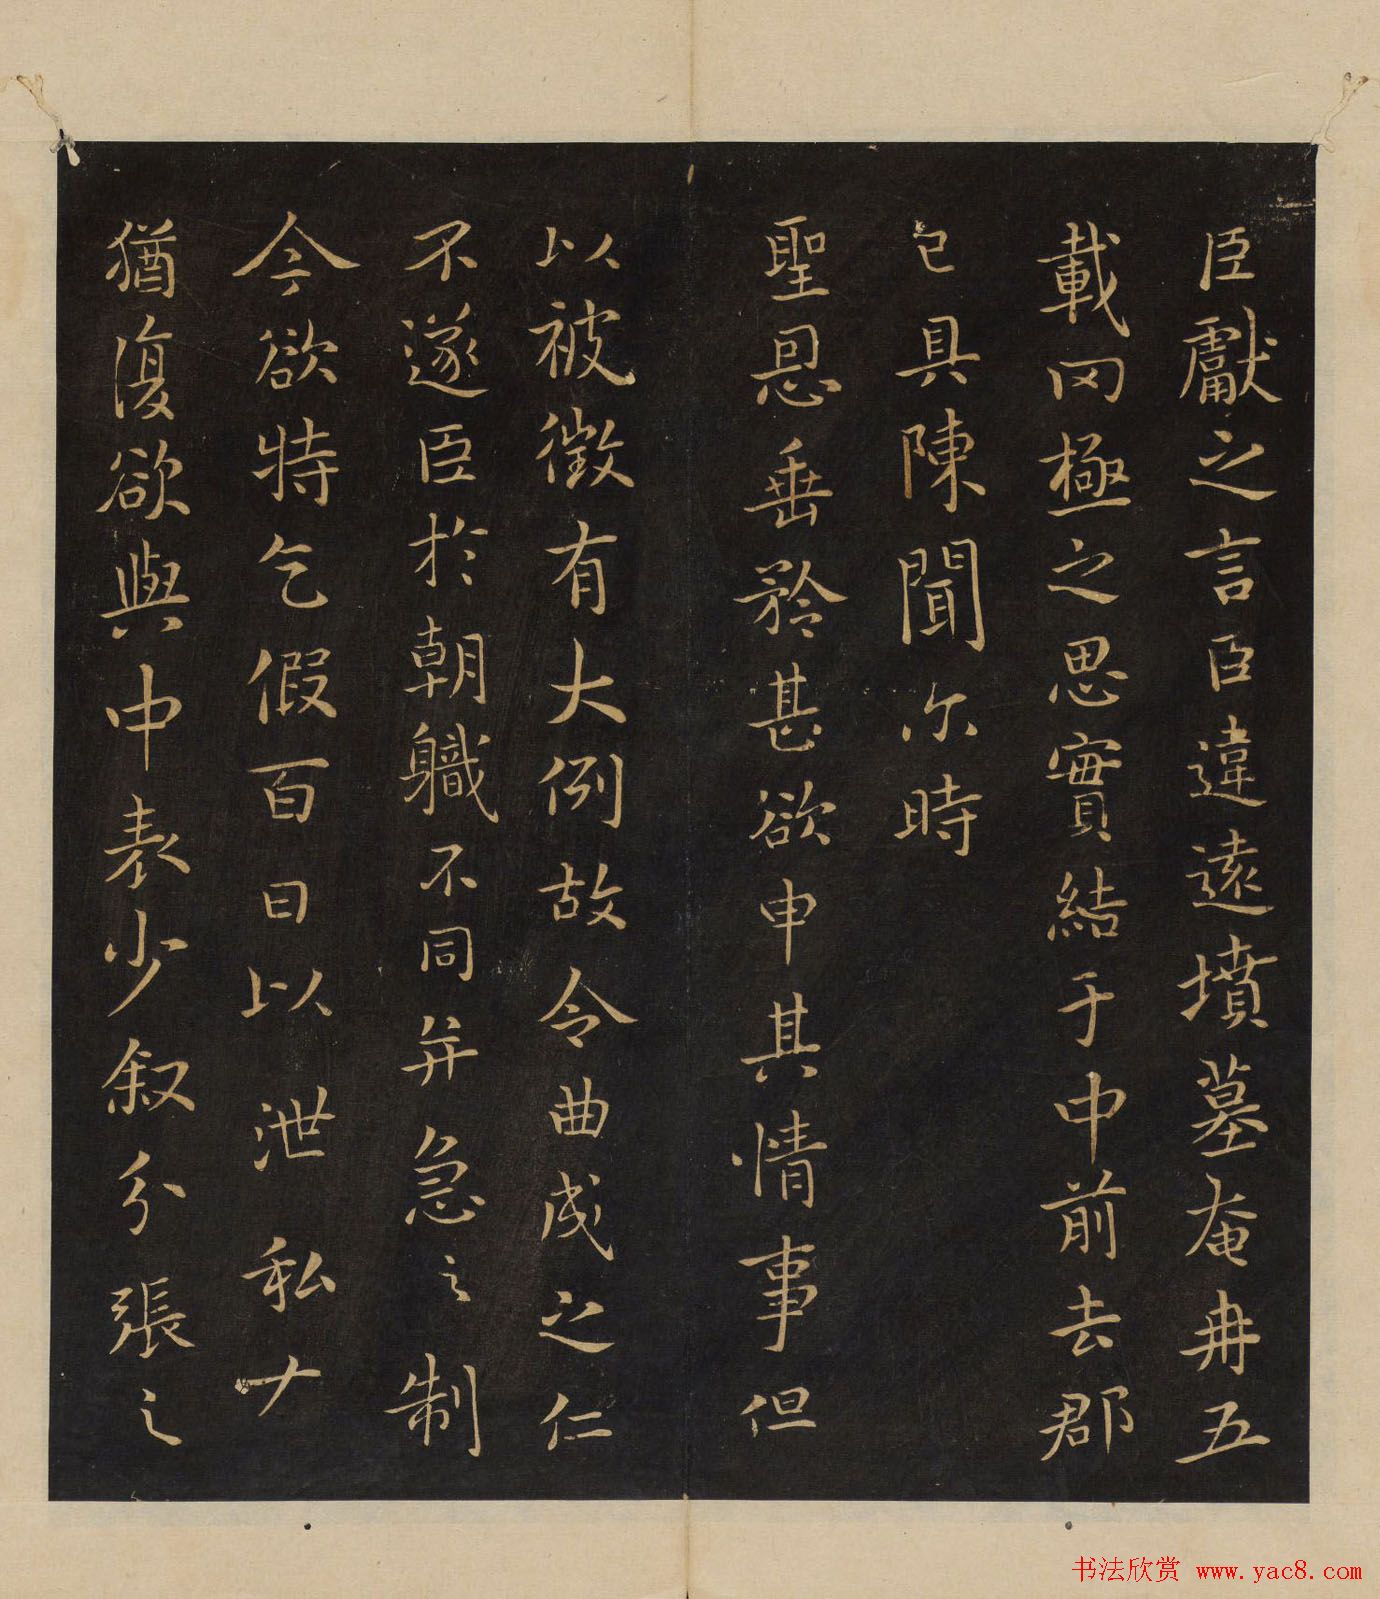 臣獻之言臣違遠墳墓奄冉五
載罔極之思實結于中前去郡
已具陳聞尒時
聖恩垂矜甚欲申其情事但
以被徵有大例故令曲成之仁
不遂臣於朝軄不同并急之制
今欲特乞假百日以泄私
猶復欲與中表少叙分張之
书法欣赏 www.yac8.com